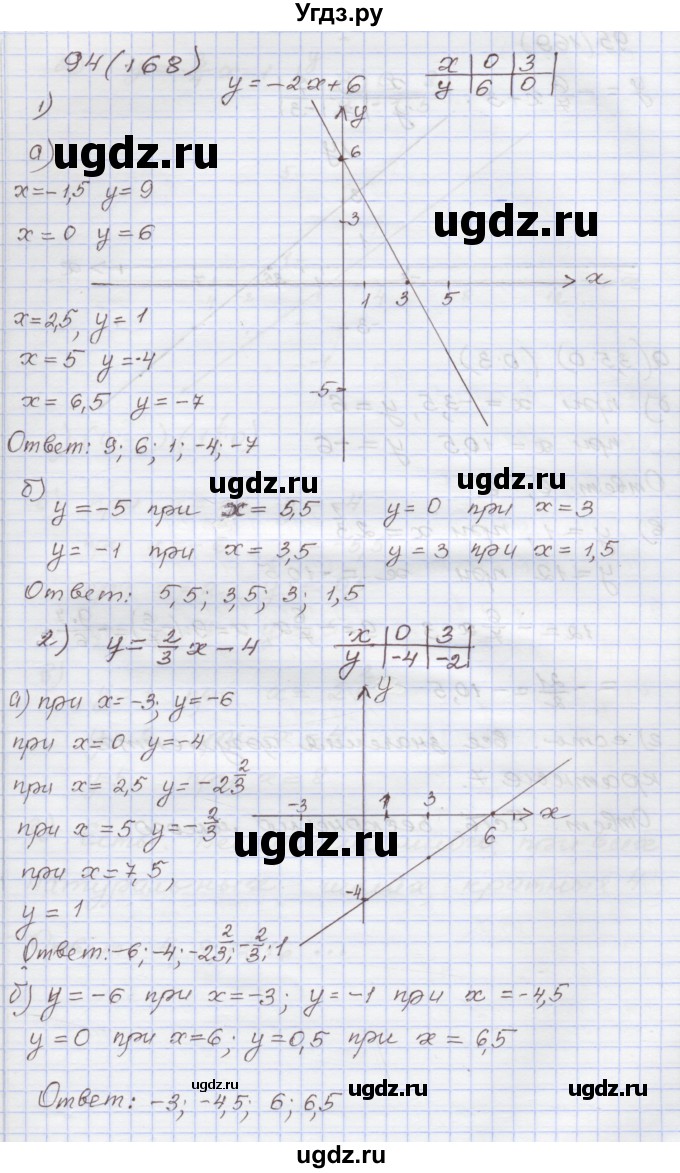 Угдз.ру
94(168)
y = -2x+6
x | 0 | 3
y | 6 | 0
1)
а)
x=-1,5 y=9
x=0 y=6
x=2,5, y=1
x=5 y=-4
x=6,5 y=-7
Ответ: 9; 6; 1; -4; -7
y
6
3
1 3 5
x
-5
б)
y=-5 при x=5,5 y=0 при x=3
y=-1 при x=3,5 y=3 при x=1,5
Ответ: 5,5; 3,5; 3; 1,5
2) y=2/3 x-4
x | 0 | 3
y | -4 | -2
а) при x=-3; y=-6
при x=0 y=-4
при x=2,5 y=-2 2/3
при x=5 y=-2/3
при x=7,5,
y=1
Ответ: -6; -4; -2 2/3; -2/3; 1
y
-3 1 3 6
x
-4
б) y=-6 при x=-3; y=-1 при x=-4,5
y=0 при x=6; y=0,5 при x=6,5
Ответ: -3; -4,5; 6; 6,5
ugdz.ru
ugdz.ru
ugdz.ru
ugdz.ru
ugdz.ru
ugdz.ru
ugdz.ru
ugdz.ru
ugdz.ru